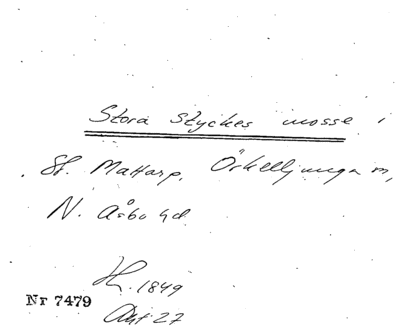 Stora Styckes mosse i
St. Mattarp, Örkelljunga sn,
N. Åsbo hd
1849
Nr 7479
Akt 27